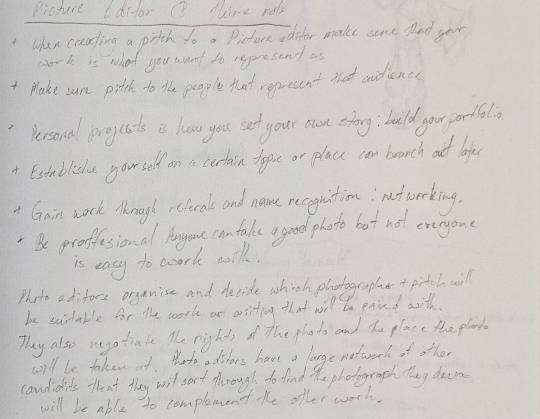 Picture Editor & Their role
+ When creating a pitch to a Picture editor make sure that your
work is what you want to represent as
+ Make sure pitch to the people that represent that audience
• Personal projects is how you set your own story : build your portfolio
+ Establishe yourself on a certain topic or place can branch out later
+ Gain work through referals and name recognition : networking.
• Be proffesional Anyone can take a good photo but not everyone
is easy to work with.
Photo editors organise and decide which photographer + pitch will
be suitable for the work or writing that will be paired with.
They also negotiate the rights of the photo and the place the photo
will be taken at. Photo editors have a large network of other
candidits that they will sort through to find the photograph they
will be able to complement the other work.